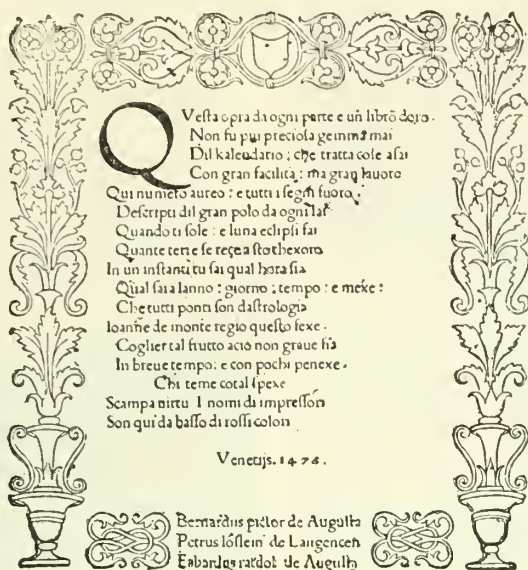 Questa opra da ogni parte e un libro doro.
Non fu piu preciosa gemma mai
Dil kalendario: che tratta cose asai
Con gran facilita: ma gran lauoro
Qui numero aureo: e tutti i segni fuoro
Descripti dil gran polo da ogni lai
Quando il sole: e luna eclipsi fai
Quante terre se rege a sto thexoro
In un instanti tu sai qual hora sia
Qual sara lanno: giorno: tempo: e mexe:
Che tutti ponti son dastrologia
Ioanne de monte regio questo fexe.
Coglier tal frutto acio non graue sia
In breue tempo: e con pochi penexe.
Chi teme cotal spexe
Scampa uirtu I nomi di impressori
Son qui da basso di rossi colori
Venetijs. 1476.
Bernardus pictor de Augusta
Petrus löslein de Langencen
Erhardus ratdolt de Augusta